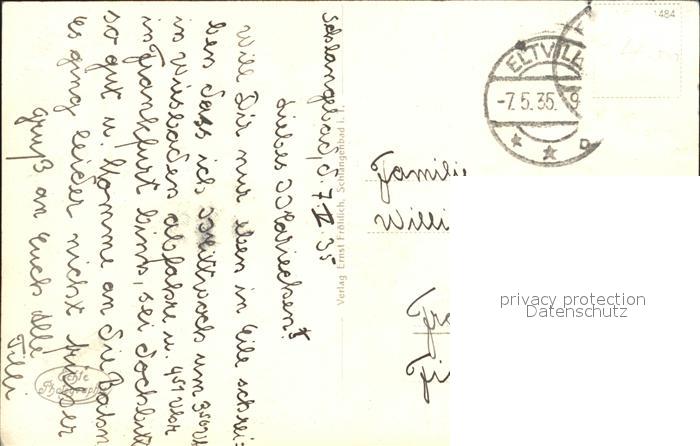 Schlangenbad, d. 7. V. 35
Liebes Mariechen!
Will Dir nur eben in Eile schrei-
ben dass ich Mittwoch um 3 50 Uhr
in Wiesbaden abfahre u. 4 51 Uhr
in Frankfurt bin, sei doch bitte
so gut u. komme an die Bahn
es ging leider nicht früher
Gruß an Euch alle
Tilli
Echte
Photographie
Verlag Ernst Fröhlich, Schlangenbad i. T.
1484
ELTVILLE
-7.5.35. 9
Familie
Willi
privacy protection
Datenschutz